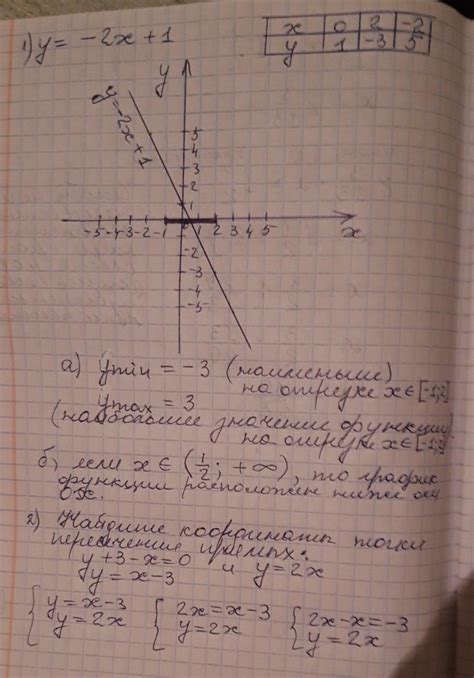 1) y = -2x + 1
x 0 2 -2
y 1 -3 5
y
y=-2x+1
5
4
3
2
1
-5 -4 -3 -2 -1 1 2 3 4 5
x
-2
-3
-4
-5
а) ymin = -3 (наименьшее)
на отрезке x∈[-1;2]
ymax = 3
(наибольшее значение функции)
на отрезке x∈[-1;2]
б) если x∈(1/2; +∞), то график
функции расположен ниже оси
OX.
2) Найдите координаты точки
пересечения прямых:
y+3-x=0 и y=2x
y=x-3
{y=x-3 {2x=x-3 {2x-x=-3
{y=2x {y=2x {y=2x